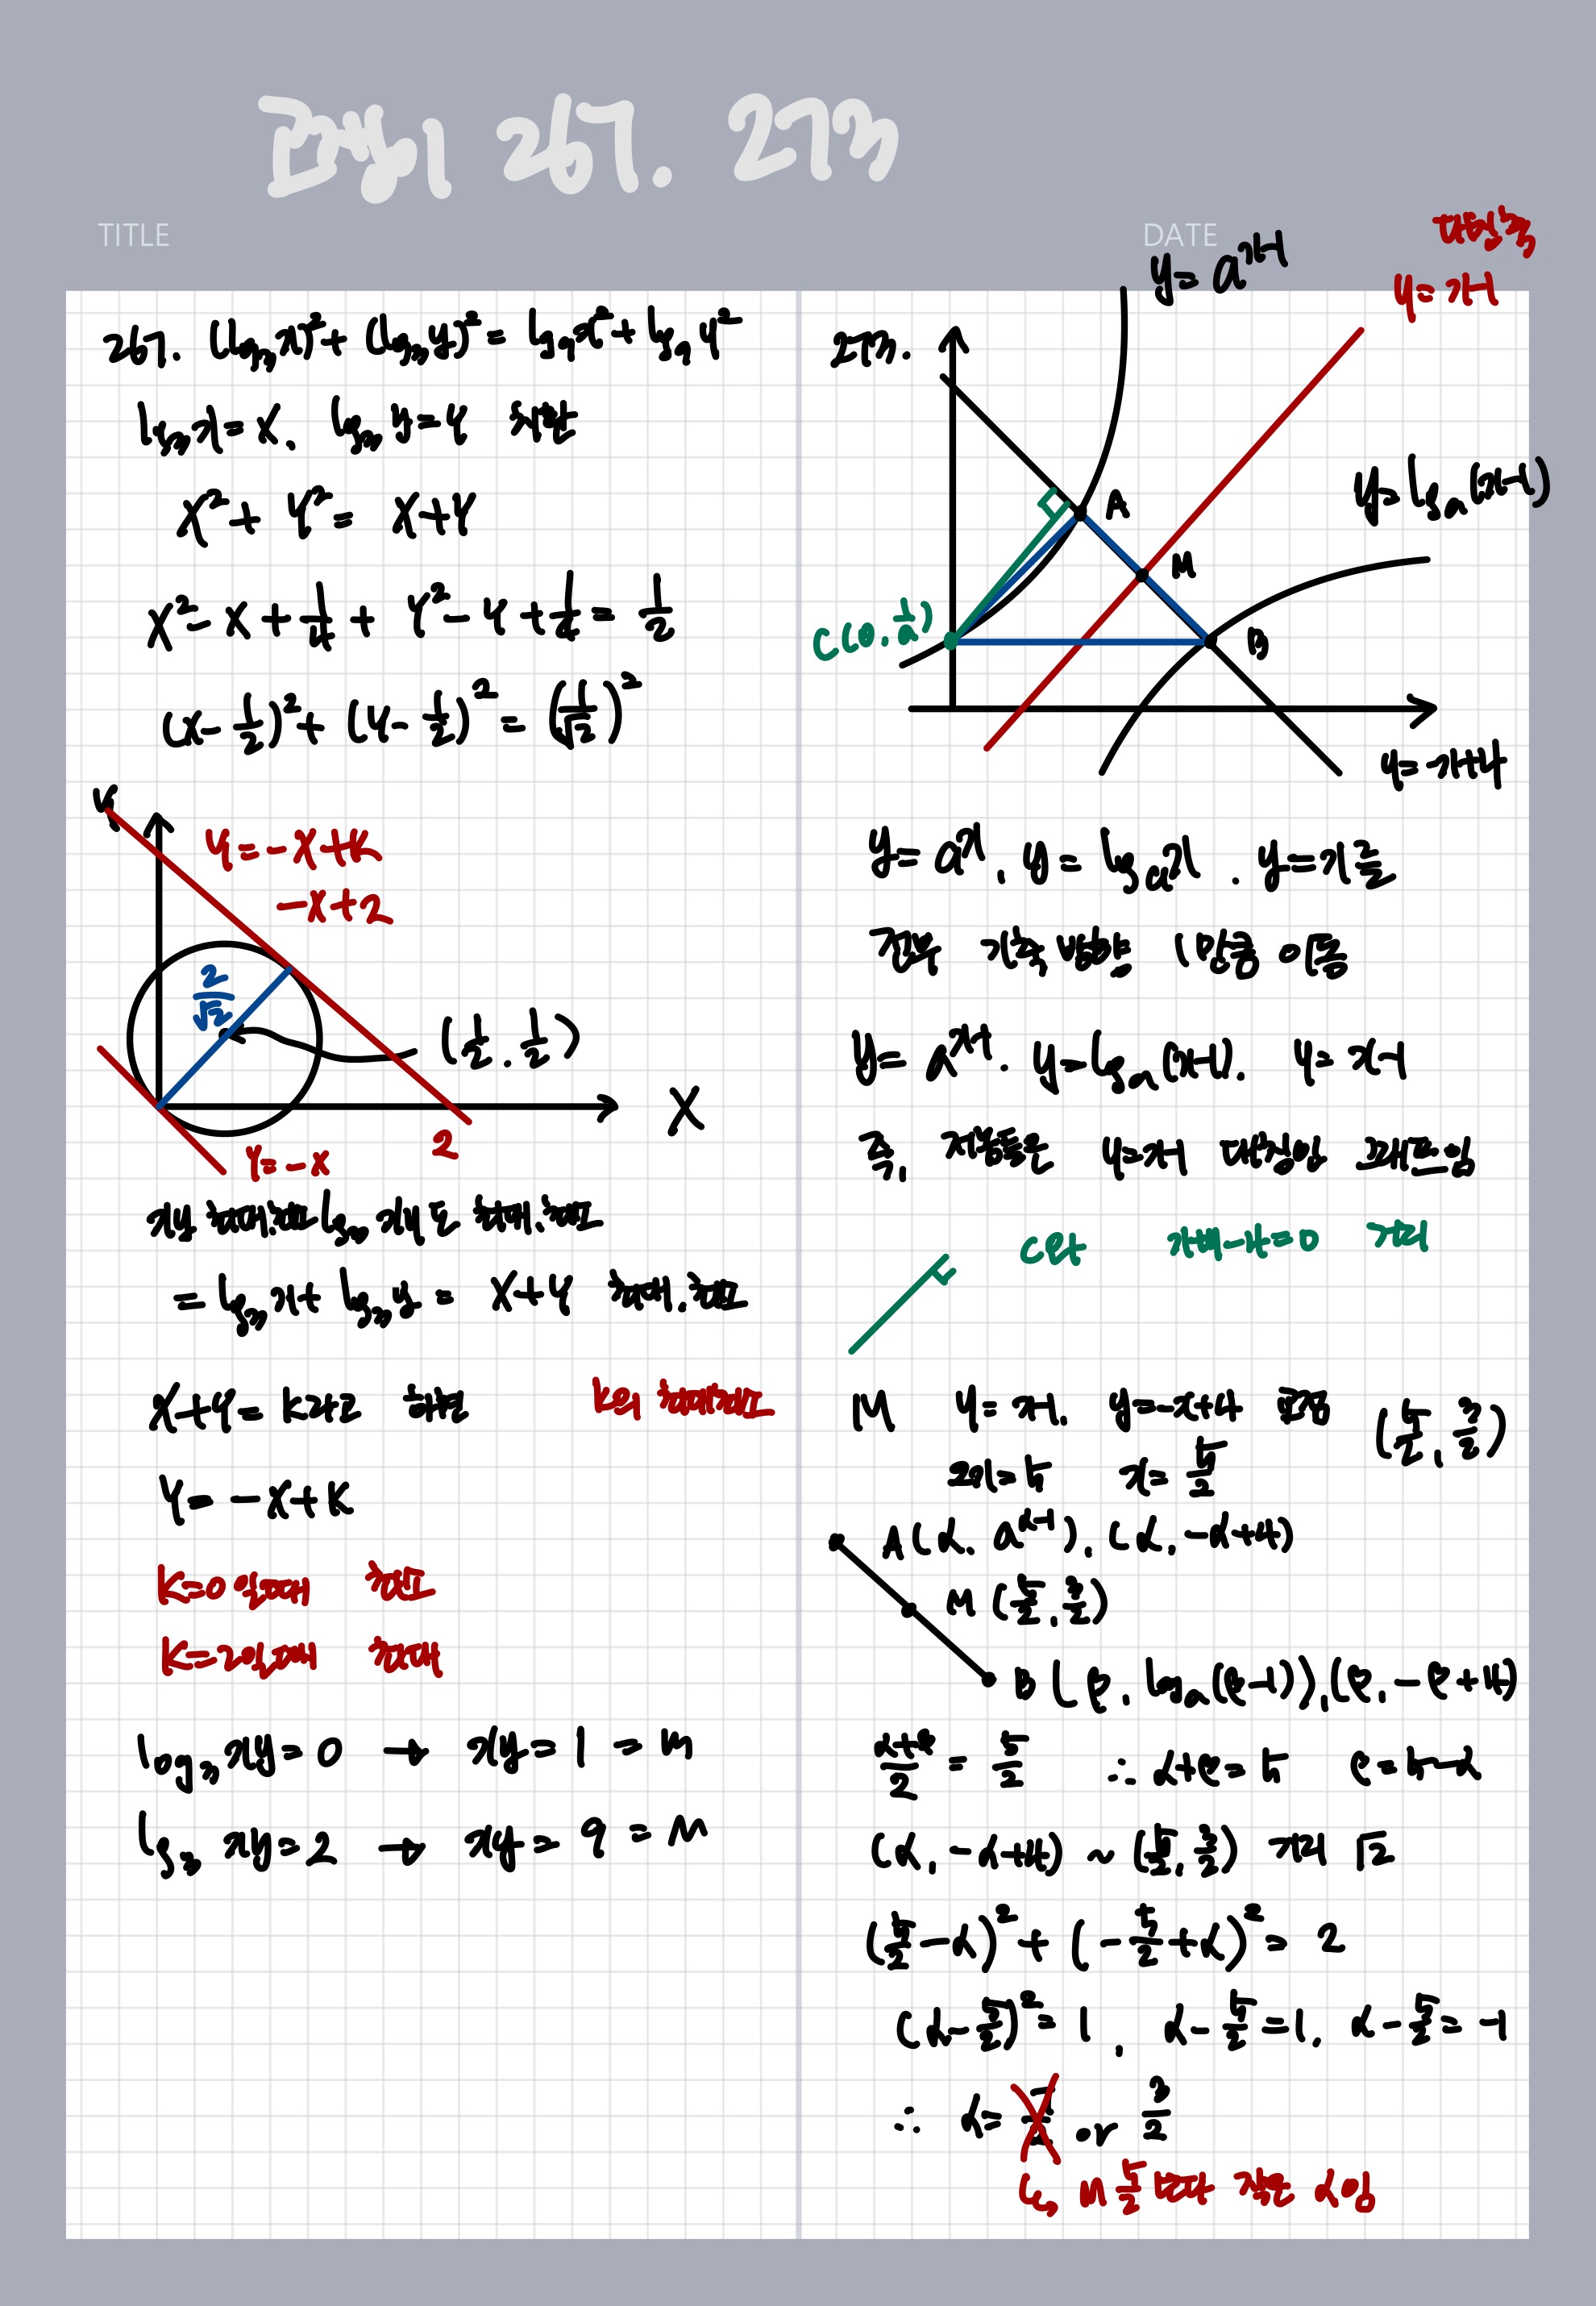 Day1 267. 273
TITLE
DATE
267. (log₃x)² + (log₃y)² = log₉x² + log₉y²
log₃x = X. log₃y = Y 치환
X² + Y² = X+Y
X² - X + 1/4 + Y² - Y + 1/4 = 1/2
(X - 1/2)² + (Y - 1/2)² = (1/√2)²
Y
Y = -X+K
-X+2
2/√2
(1/2 . 1/2)
X
2
Y = -X
xy 최대.최소 log₃xy도 최대.최소
= log₃x + log₃y = X+Y 최대.최소
X+Y = K라고 하면 K의 최대최소
Y = -X+K
K=0일때 최소
K=2일때 최대
log₃xy = 0 → xy = 1 = m
log₃xy = 2 → xy = 9 = M
대칭축
y = x-1
y = a^(x-1)
273.
A
y = logₐ(x-1)
M
C(0. 1/a)
B
y = -x+4
y = a^x, y = logₐx . y = x를
전부 x축 방향 1만큼 이동
y = a^(x-1). y = logₐ(x-1). y = x-1
즉, 저놈들은 y=x-1 대칭인 그래프임
C와 x+y-4=0 거리
M y = x-1. y = -x+4 교점 (5/2, 3/2)
2x = 5 x = 5/2
A(α. a^(α-1)), (α. -α+4)
M (5/2, 3/2)
B (β. logₐ(β-1)), (β. -β+4)
(α+β)/2 = 5/2 ∴ α+β = 5 β = 5-α
(α, -α+4) ~ (5/2, 3/2) 거리 √2
(5/2 - α)² + (-5/2 + α)² = 2
(α - 5/2)² = 1, α - 5/2 = 1, α - 5/2 = -1
∴ α = or 3/2
M 5/2 보다 작은 α임